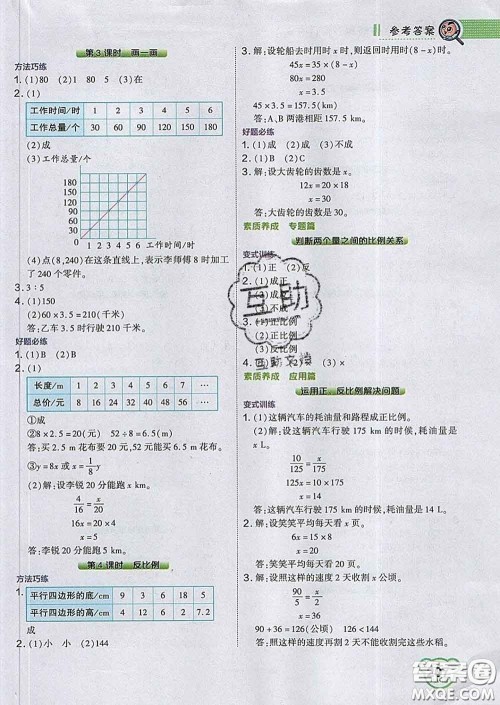 参考答案
第3课时 画一画
方法巧练
1.(1)80 (2)1 80 (3)在
2.(1)
工作时间/时 1 2 3 4 5 6
工作总量/个 30 60 90 120 150 180
(2)成
(3)工作总量/个
180
150
120
90
60
30
0 1 2 3 4 5 6 工作时间/时
(4)点(8,240)在这条直线上,表示李师傅8时加工了240个零件。
3.3∶5
4.(1)150
(2)60×3.5=210(千米)
答:乙车3.5时行驶210千米。
好题必练
1.(1)B (2)B
2.(1)
长度/m 1 2 3 4 5 6 7 …
总价/元 8 16 24 32 40 48 56 …
①成
②8×2.5=20(元) 52÷8=6.5(米)
答:买2.5米花布要20元,52元能买6.5米花布。
③y=8x或x=1/8y
(2)解:设李锐20分能跑x km。
4/16=x/20
16x=20×4
x=5
答:李锐20分能跑5 km。
第4课时 反比例
方法巧练
1.
平行四边形的底/cm 9 3 6 18 5
平行四边形的高/cm 4 12 6 2 7.2
成
2.(1)小 小 (2)144
3.解:设轮船去时用时x时,则返回时用时(8-x)时。
45x=35×(8-x)
80x=280
x=3.5
45×3.5=157.5(km)
答:A、B两港相距157.5 km。
好题必练
1.(1)成 (2)成 (3)不成
2.(1)B (2)C
3.解:设大齿轮的齿数是x。
12x=20×18
x=30
答:大齿轮的齿数是30。
素质养成 专题篇
判断两个量之间的比例关系
变式训练
1.(1)正 (2)反
2.(1)成正
(3)不成
3.(1)正比例
(2)反比例
(3)正比例
(3)×
素质养成 应用篇
运用正、反比例解决问题
变式训练
1.(1)这辆汽车的耗油量和路程成正比例。
(2)解:设这辆汽车行驶175 km的时候,耗油量是x L。
10/125=x/175
125x=10×175
x=14
答:这辆汽车行驶175 km的时候,耗油量是14 L。
2.解:设笑笑平均每天
x=20
答:笑笑平均每天
3.解:设照这样的速度2天可
90+36=126(公顷) 126<144
答:照这样的速度再割2天不能收割完这些水稻。
互助
互助文档
答案圈
MXQE.COM